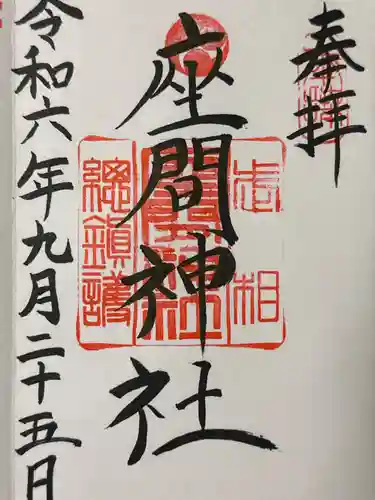 奉拝
座間神社
相武
總鎮護
令和六年九月二十五日